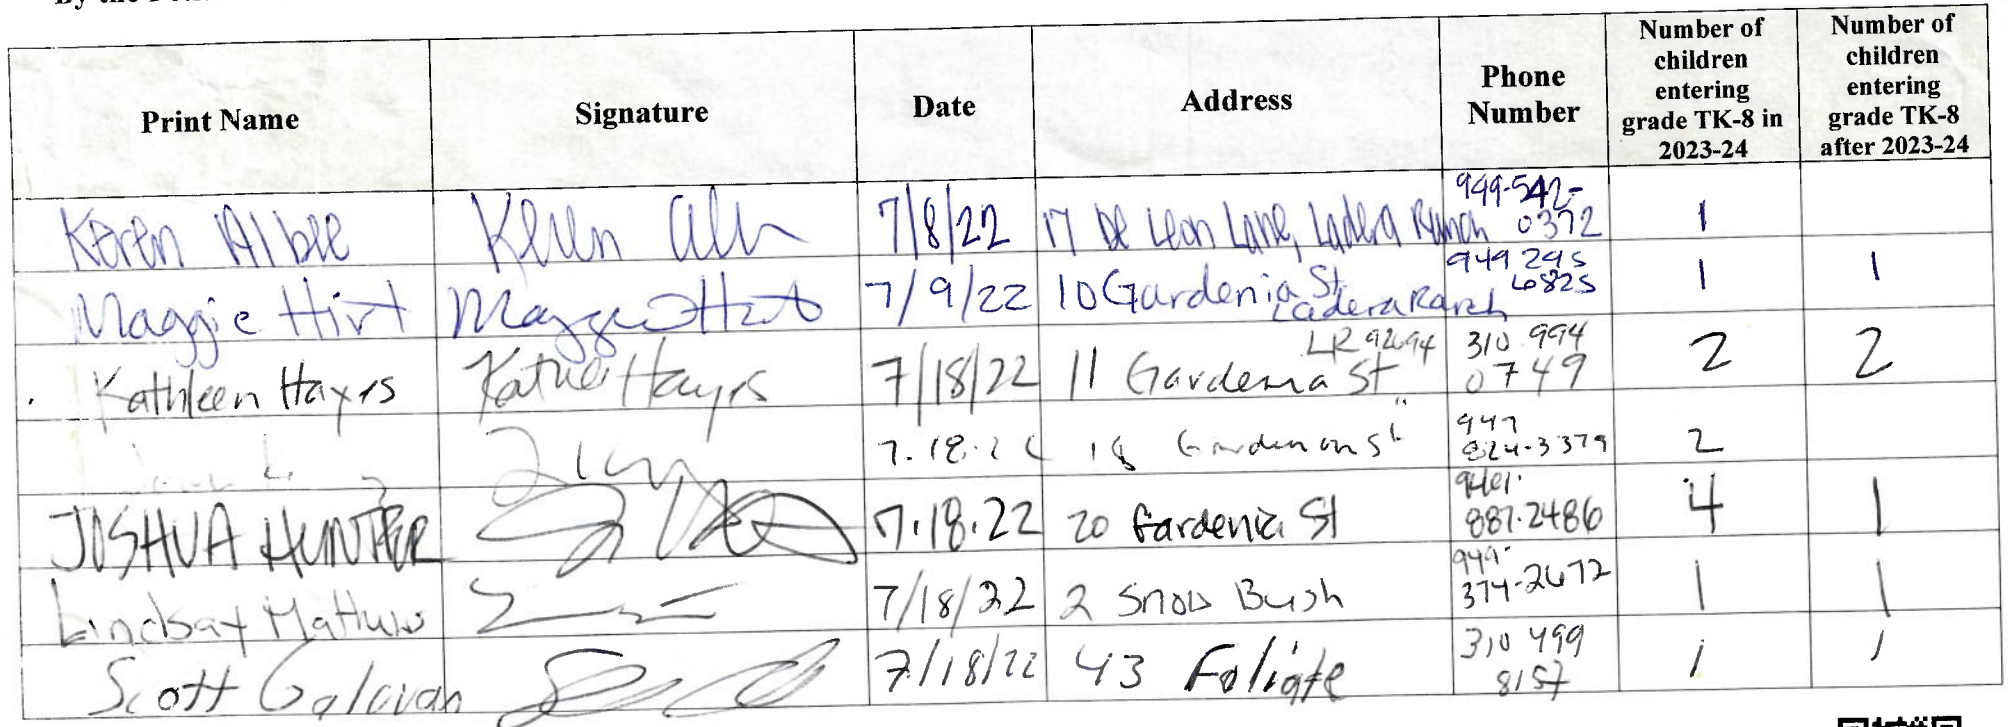 By the
Print Name
Signature
Date
Address
Phone
Number
Number of
children
entering
grade TK-8 in
2023-24
Number of
children
entering
grade TK-8
after 2023-24
Keren Albee Keren 7/8/22 17 De Leon Lane, Ladera Ranch 949-542-
0372 1
Maggie Hirt Maggie Hirt 7/9/22 10 Gardenia St 949 295 1 1
Ladera Ranch 6825
LR 92694
Kathleen Hayrs Katie Hayrs 7/18/22 11 Gardenia St 310 994 2 2
0749
7.18.22 18 St 949 2
824-3379
JOSHUA HUNTER 7.18.22 20 Gardenia St 4 1
887.2486
Lindsay Mathews 7/18/22 2 Snow Bush 949- 1 1
374-2672
Scott Galavan 7/18/22 43 Foliate 310 499 1 1
8157